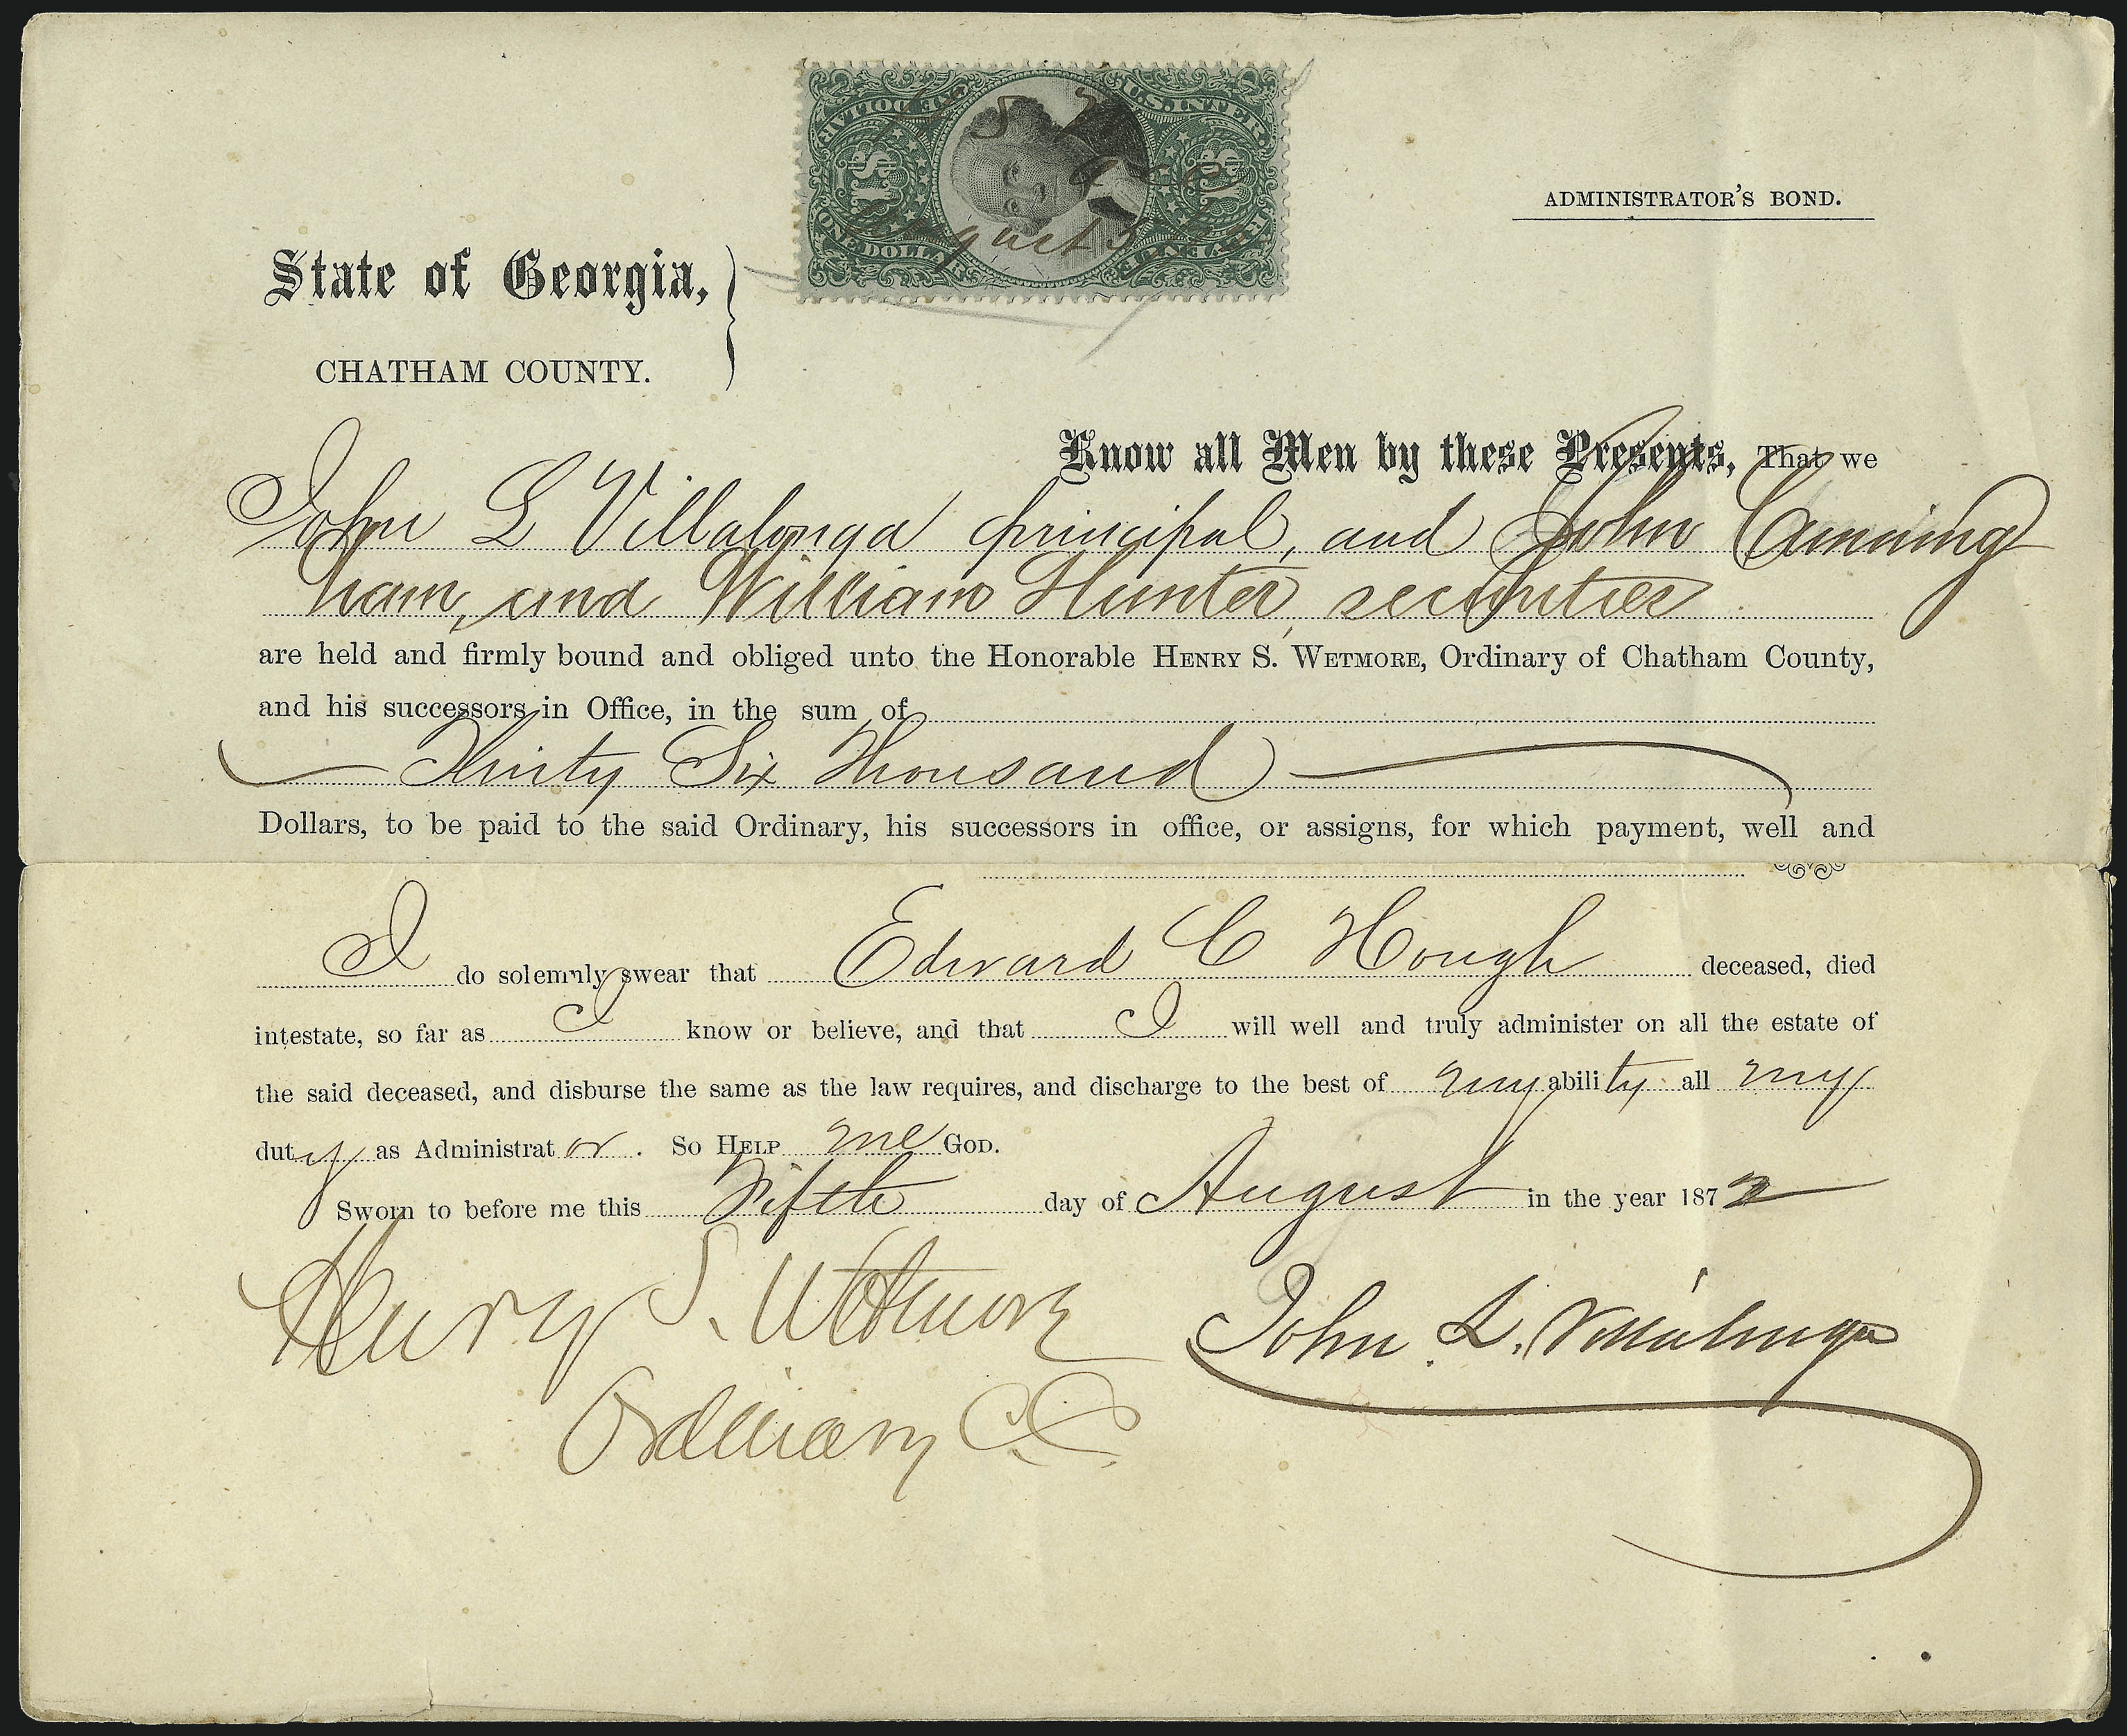 U.S. INTER. REVENUE
ONE DOLLAR
$1
$1
ONE DOLLAR
August 5
ADMINISTRATOR'S BOND.
State of Georgia,
CHATHAM COUNTY.
Know all Men by these Presents, That we
John L Villalonga principal, and John Cunning
ham, and William Hunter, securities
are held and firmly bound and obliged unto the Honorable HENRY S. WETMORE, Ordinary of Chatham County,
and his successors in Office, in the sum of
Thirty Six Thousand
Dollars, to be paid to the said Ordinary, his successors in office, or assigns, for which payment, well and
I do solemnly swear that Edward C Hough deceased, died
intestate, so far as I know or believe, and that I will well and truly administer on all the estate of
the said deceased, and disburse the same as the law requires, and discharge to the best of my ability all my
duty as Administrator. SO HELP me GOD.
Sworn to before me this Fifth day of August in the year 1872
Henry S. Wetmore John L. Villalonga
Ordinary C.C.